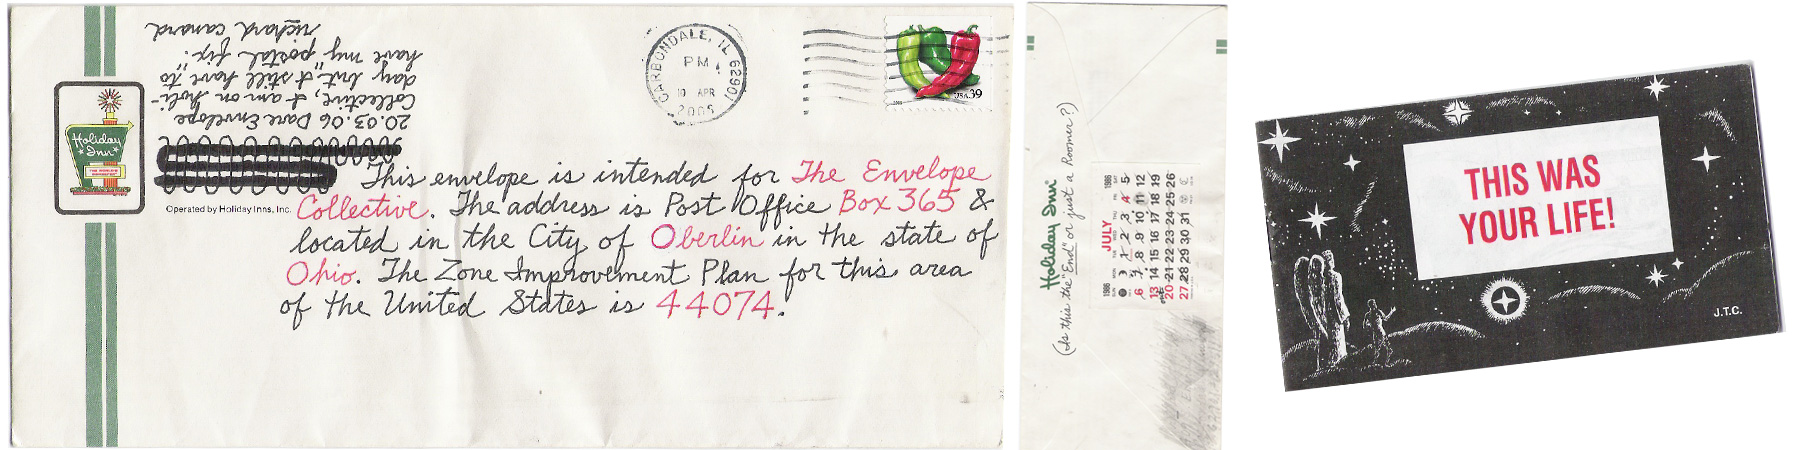 20.03.06 Dare Envelope
Collective, I am on holi-
day but I still have "to
have my "postal fix".
richard canard
CARBONDALE, IL 62901
PM
10 APR
2006
USA 39
Holiday
Inn
Operated by Holiday Inns, Inc.
This envelope is intended for The Envelope
Collective. The address is Post Office Box 365 &
located in the City of Oberlin in the state of
Ohio. The Zone Improvement Plan for this area
of the United States is 44074.
Holiday Inn
(Is this the "End" or just a Roomer?)
1986 JULY 1986
SUN MON TUE WED THU FRI SAT
1 2 3 4 5
6 7 8 9 10 11 12
13 14 15 16 17 18 19
20 21 22 23 24 25 26
27 28 29 30 31
THIS WAS
YOUR LIFE!
J.T.C.